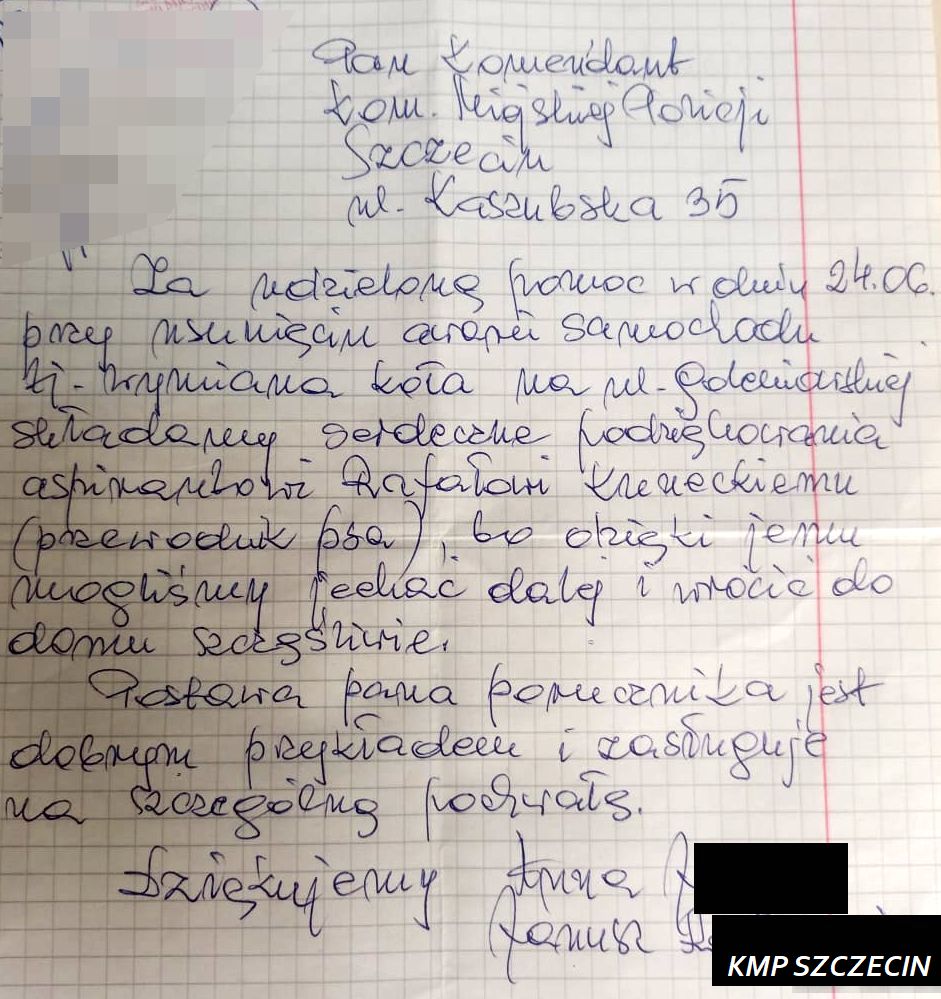 Pan Komendant
Kom. Miejskiej Policji
Szczecin
ul. Kaszubska 35
Za udzieloną pomoc w dniu 24.06.
przy usunięciu awarii samochodu
tj. wymiana koła na ul. Gdańskiej
składamy serdeczne podziękowania
aspirantowi Rafałowi
(przewodnik psa), bo dzięki jemu
mogliśmy jechać dalej i wrócić do
domu szczęśliwie.
Postawa pana porucznika jest
dobrym przykładem i zasługuje
na szczególną pochwałę.
Dziękujemy Anna
Janusz
KMP SZCZECIN